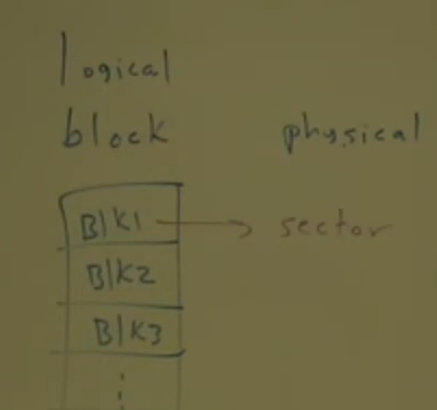 logical
block physical
Blk1 → sector
Blk2
Blk3